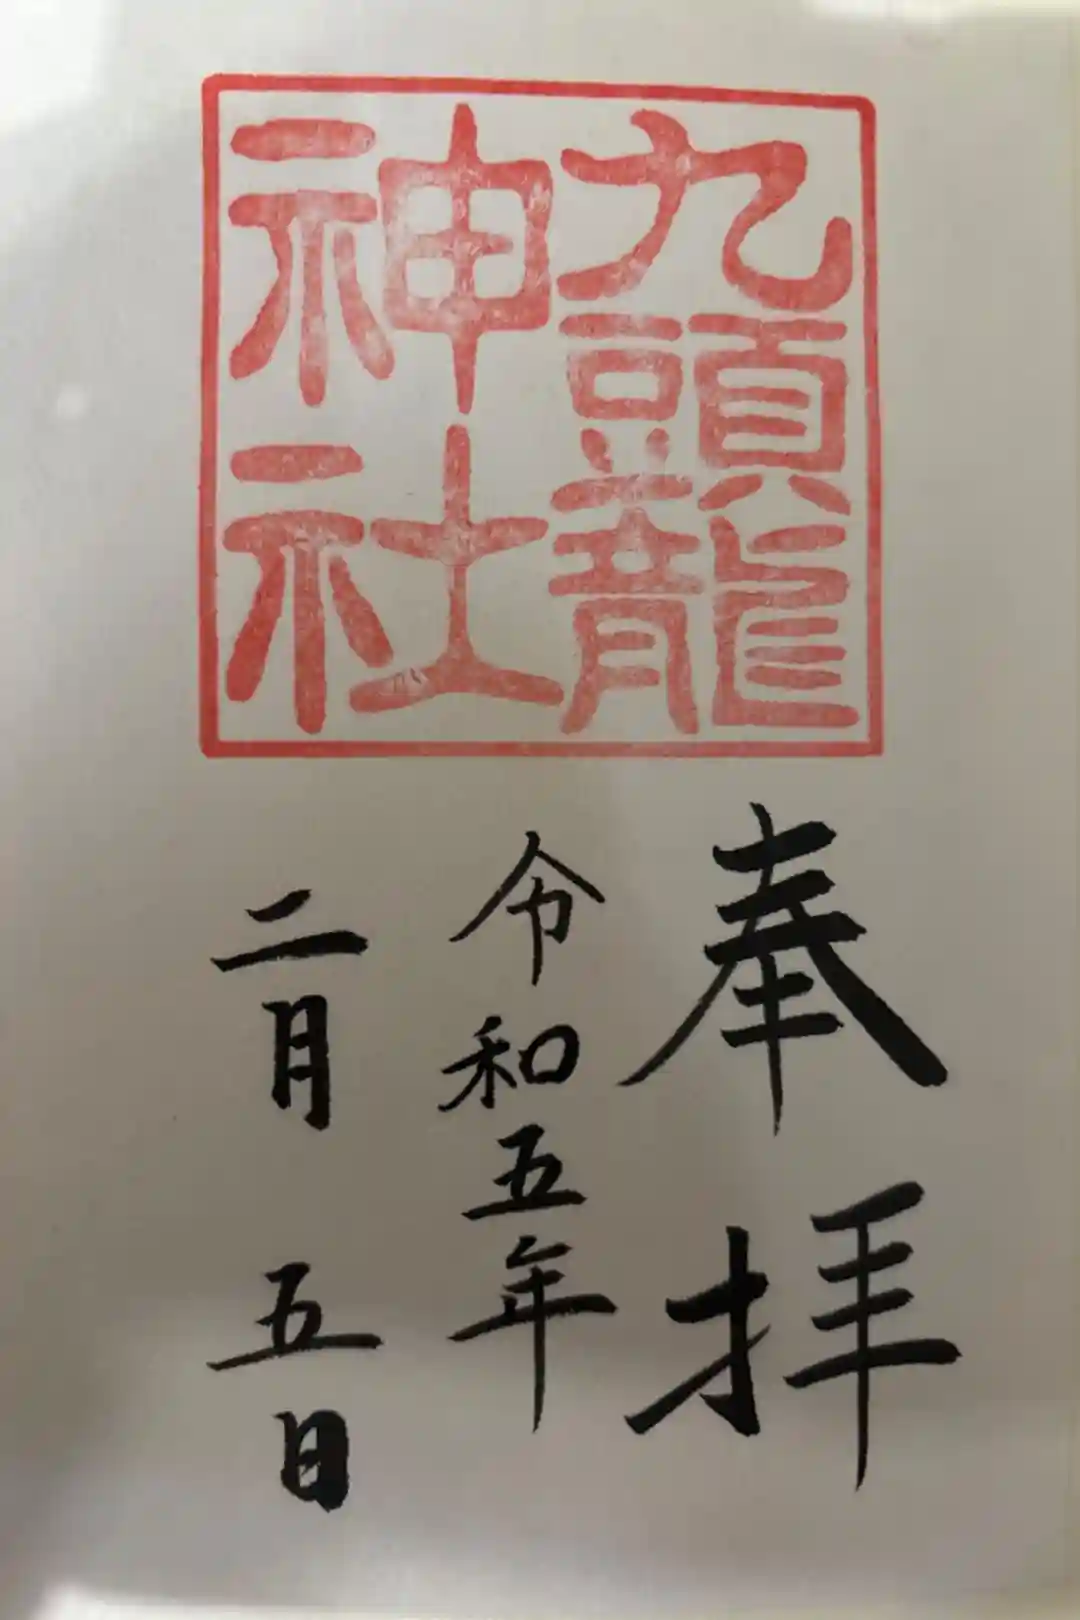 九頭龍
神社
奉拝
令和五年
二月五日